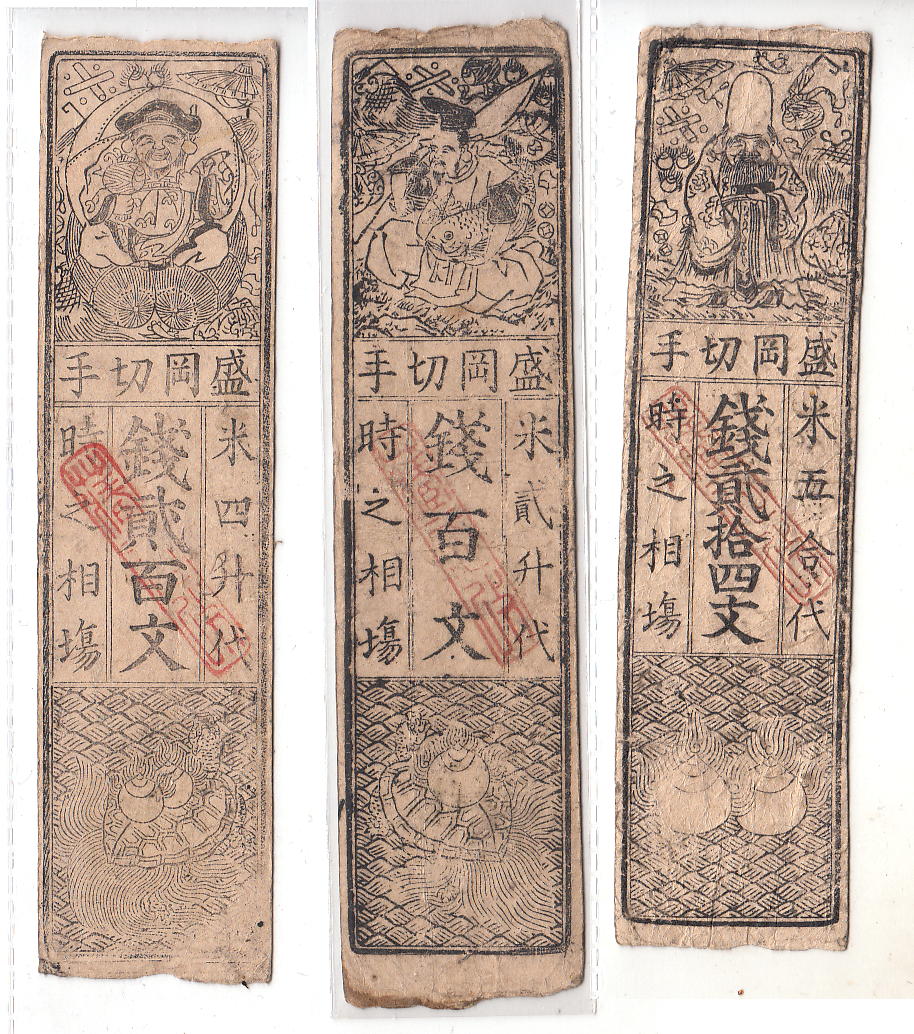 盛岡切手
米四升代
錢貳百文
時之相塲
盛岡切手
米貳升代
錢百文
時之相塲
盛岡切手
米五合代
錢貳拾四文
時之相塲